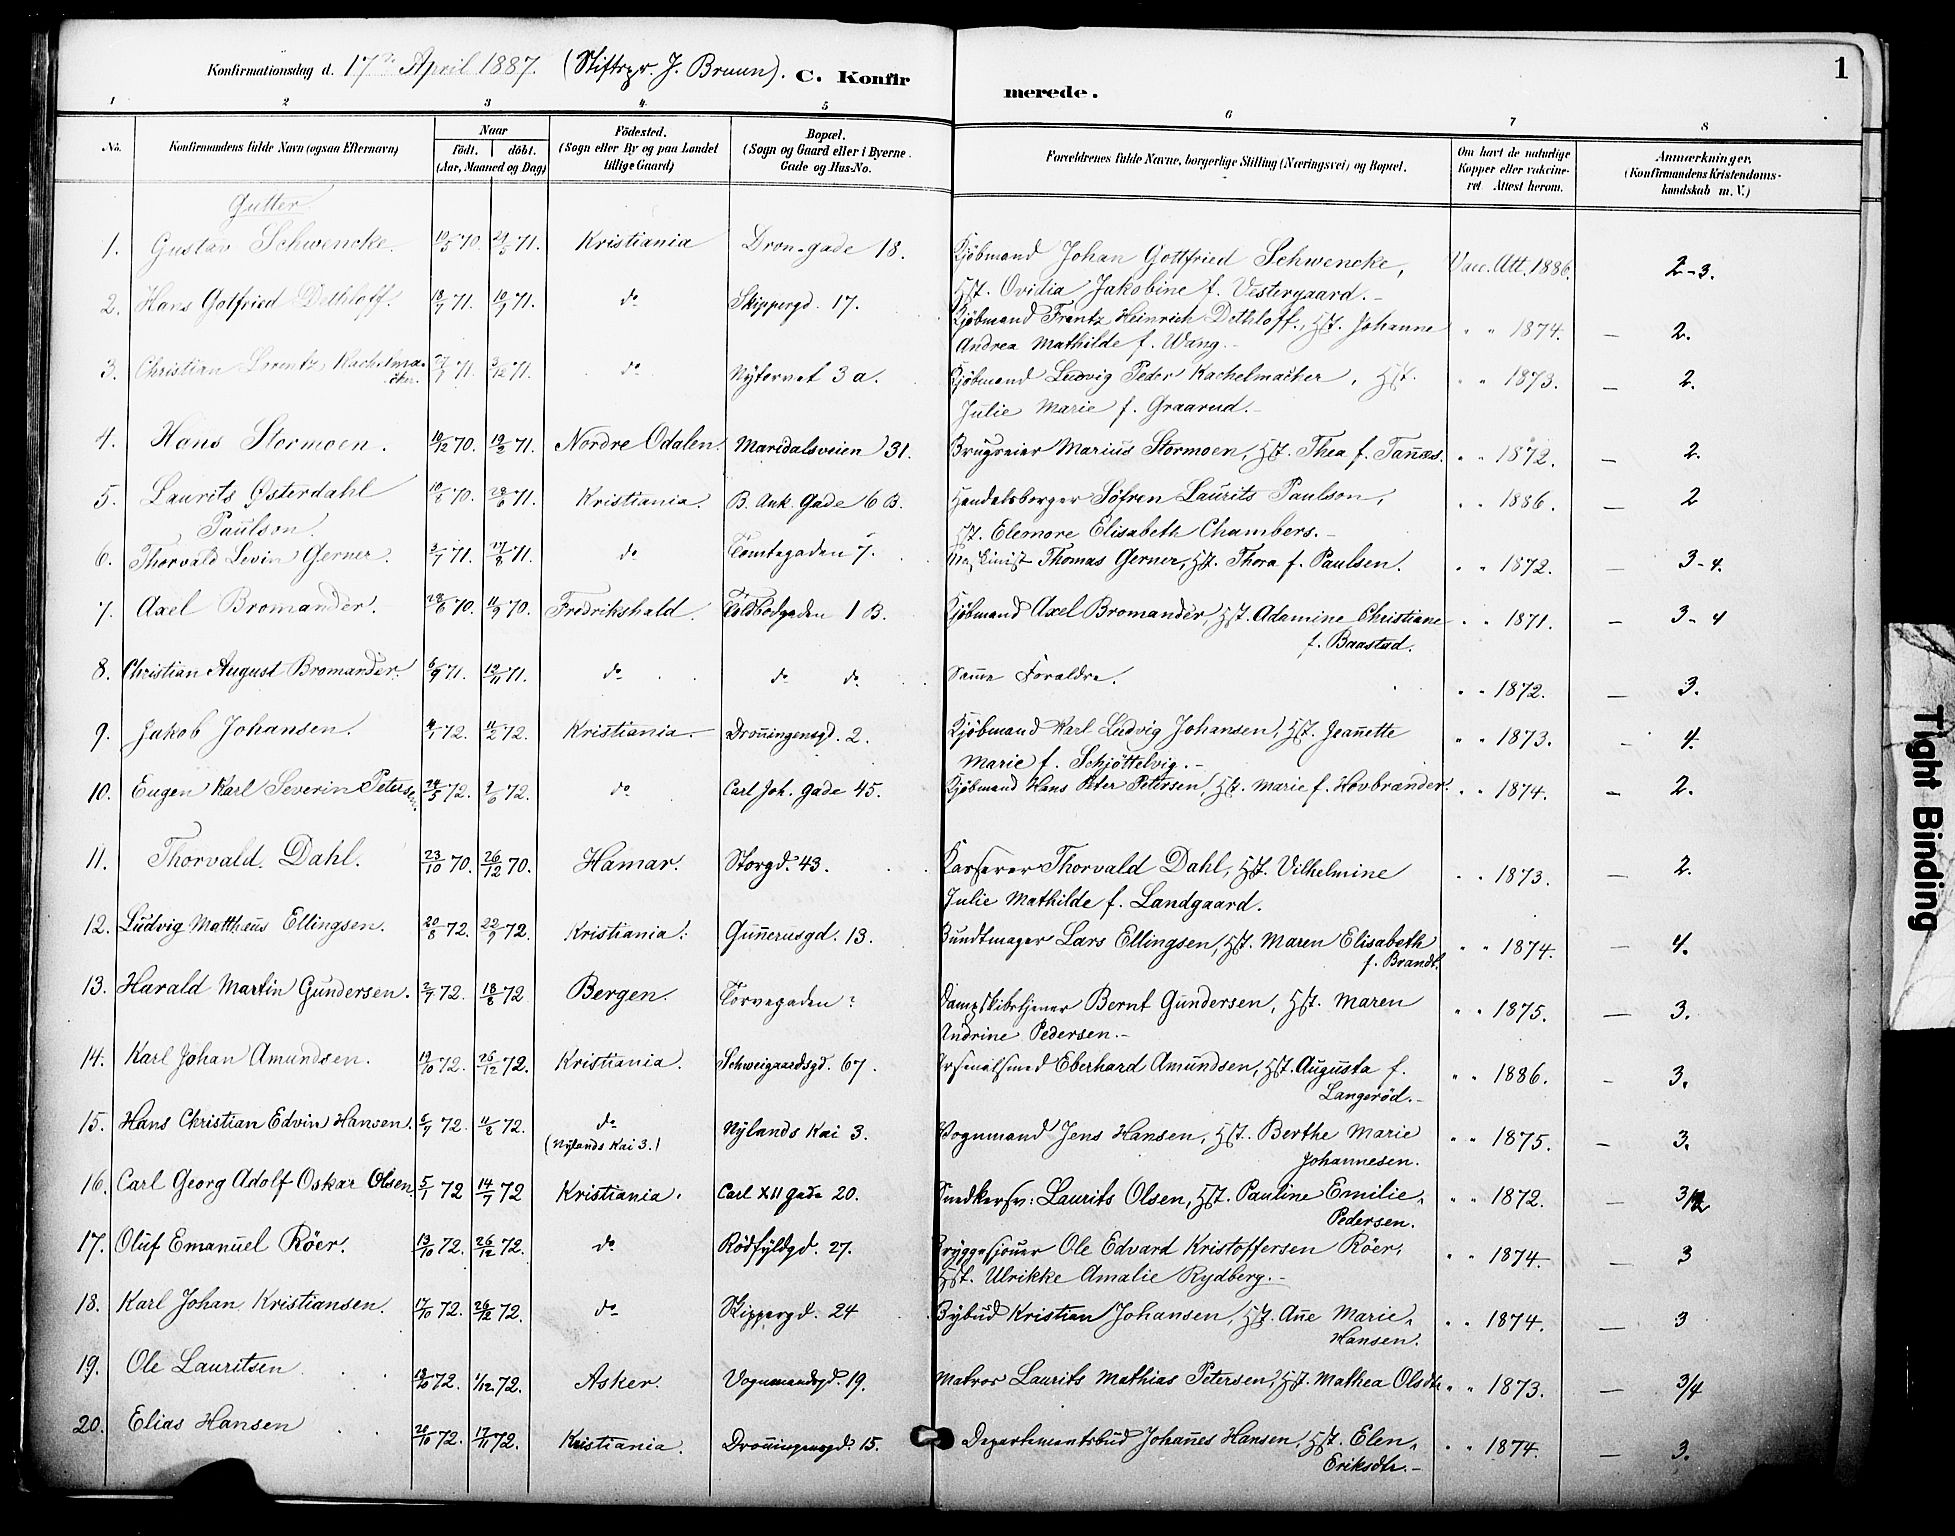 1
Konfirmationsdag d. 17de April 1887. (Stiftspr. J. Bruun). C. Konfir merede.
1 2 3 4 5 6 7 8
No. Konfirmandens fulde Navn (ogsaa Efternavn) Naar födt. döbt. (Aar, Maaned og Dag) Födested. (Sogn eller By og paa Landet tillige Gaard) Bopæl. (Sogn og Gaard eller i Byerne Gade og Hus-No. Forældrenes fulde Navne, borgerlige Stilling (Næringsvei) og Bopæl. Om havt de naturlige Kopper eller vakcineret Attest herom. Anmærkninger. (Konfirmandens Kristendomskundskab m. V.)
Gutter
1. Gustav Schwencke. 70. 71. Kristiania Dron.gade 18. Kjöbmand Johan Gottfried Schwencke, Vacc. Att. 1886. 2-3.
Hst. Ovidia Jakobine f. Vestergaard.-
2. Hans Gotfried Dethloff. 71. 71. do Skippergd. 17. Kjöbmand Frantz Heinrich Dethloff, Hst. Johanne " " 1874. — 2.
Andrea Mathilde f. Wang.-
3. Christian Lorentz Kachelmacker. 71. 3/12 71. do Nytorvet 3 a. Kjöbmand Ludvig Peder Kachelmacker, Hst. " " 1873. — 2.
Julie Marie f. Graarud.-
4. Hans Stormoen. 70. 71. Nordre Odalen. Maridalsveien 31. Brugseier Marius Stormoen, Hst. Thea f. Tannæs. " " 1872. — 2.
5. Laurits Østerdahl 70. 71. Kristiania. B. Ank. Gade 6 B. Handelsborger Søfren Laurits Paulson, " " 1886. — 2
Paulson. Hst. Elemore Elisabeth Chambers.-
6. Thorvald Levin Gerner. 71. 71. do Tomtegaden 7. Maskinist Thomas Gerner, Hst. Thora f. Paulsen. " " 1872. — 3-4.
7. Axel Bromander. 70. 11/9 70. Fredrikshald. Toldbodgaden 1 B. Kjöbmand Axel Bromander, Hst. Adamine Christiane " " 1871. — 3-4
f. Baastad.
8. Christian August Bromander. 6/9 71. 71. do do do Samme Foraldre. " " 1872. — 3.
9. Jakob Johansen. 72. 11/2 72. Kristiania.- Dronningensgd. 2. Kjöbmand Karl Ludvig Johansen, Hst. Jeanette " " 1873. — 4.
Marie f. Schjöttelvig.-
10. Eugen Karl Severin Petersen. 24/5 72. 72. do Carl Joh. Gade 45. Kjöbmand Hans Peter Petersen, Hst. Marie f. Hovbrander. " " 1874. — 2.
11. Thorvald Dahl. 23/10 70. 26/12 70. Hamar. Storgd. 43. Kasserer Thorvald Dahl, Hst. Vilhelmine " " 1873. — 2.
Julie Mathilde f. Landgaard.
12. Ludvig Mattheus Ellingsen. 20/8 72. 22/9 72. Kristiania. Gunnerusgd. 13. Bundtmager Lars Ellingsen, Hst. Maren Elisabeth " " 1874. — 4.
f. Brandt.
13. Harald Martin Gundersen. 2/7 72. 18/8 72 Bergen. Torvegaden ? Dampskibstjener Bernt Gundersen, Hst. Maren " " 1875. — 3.
Andrine Pedersen.-
14. Karl Johan Amundsen. 19/10 72. 26/12 72. Kristiania. Schweigaardsgd. 67. Arsenalsmed Eberhard Amundsen, Hst. Augusta f. " " 1886. — 3.
Langeröd.-
15. Hans Christian Edvin Hansen. 72. 11/8 72. do Nylands Kai 3. Vognmand Jens Hansen, Hst. Berthe Marie " " 1875. — 3.
(Nylands Kai 3.) Johannesen.
16. Carl Georg Adolf Oskar Olsen. 5/1 72 14/7 72 Kristiania. Carl XII Gade 20. Snedkersv: Laurits Olsen, Hst. Pauline Emilie " " 1872. —
Pedersen.
17. Oluf Emanuel Röer. 13/10 72. 26/12 72. do Rödfyldgd. 27. Bryggesjouer Ole Edvard Kristoffersen Röer, " " 1874. — 3
Hst. Ulrikke Amalie Rydberg.-
18. Karl Johan Kristiansen. 17/10 72. 26/12 72. do Skippergd. 24 Bybud Kristian Johansen, Hst. Ane Marie " " 1874. — 3
Hansen.
19. Ole Lauritsen 72. 1/12 72. Asker. Vognmandsgd. 19. Matros Laurits Mathias Petersen, Hst. Mathea Olsdtr " " 1873. — 3/4
20. Elias Hansen 72. 17/11 72. Kristiania. Dronningensgd. 15. Departementsbud Johannes Hansen, Hst. Elen " " 1874. — 3.
Eriksdtr.-
Tight Binding